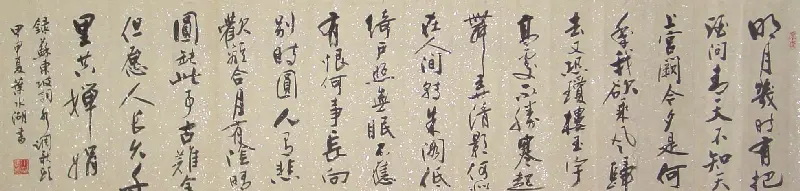 明月幾时有把
酒问青天不知天
上宫阙今夕是何
年我欲乘风歸
去又恐瓊樓玉宇
高處不勝寒起
舞弄清影何似
在人间转朱阁低
绮户照無眠不應
有恨何事長向
别時圓人有悲
歡離合月有陰晴
圓缺此事古難全
但愿人长久千
里共婵娟
錄蘇東坡詞水调歌头
甲申夏葉水湖書